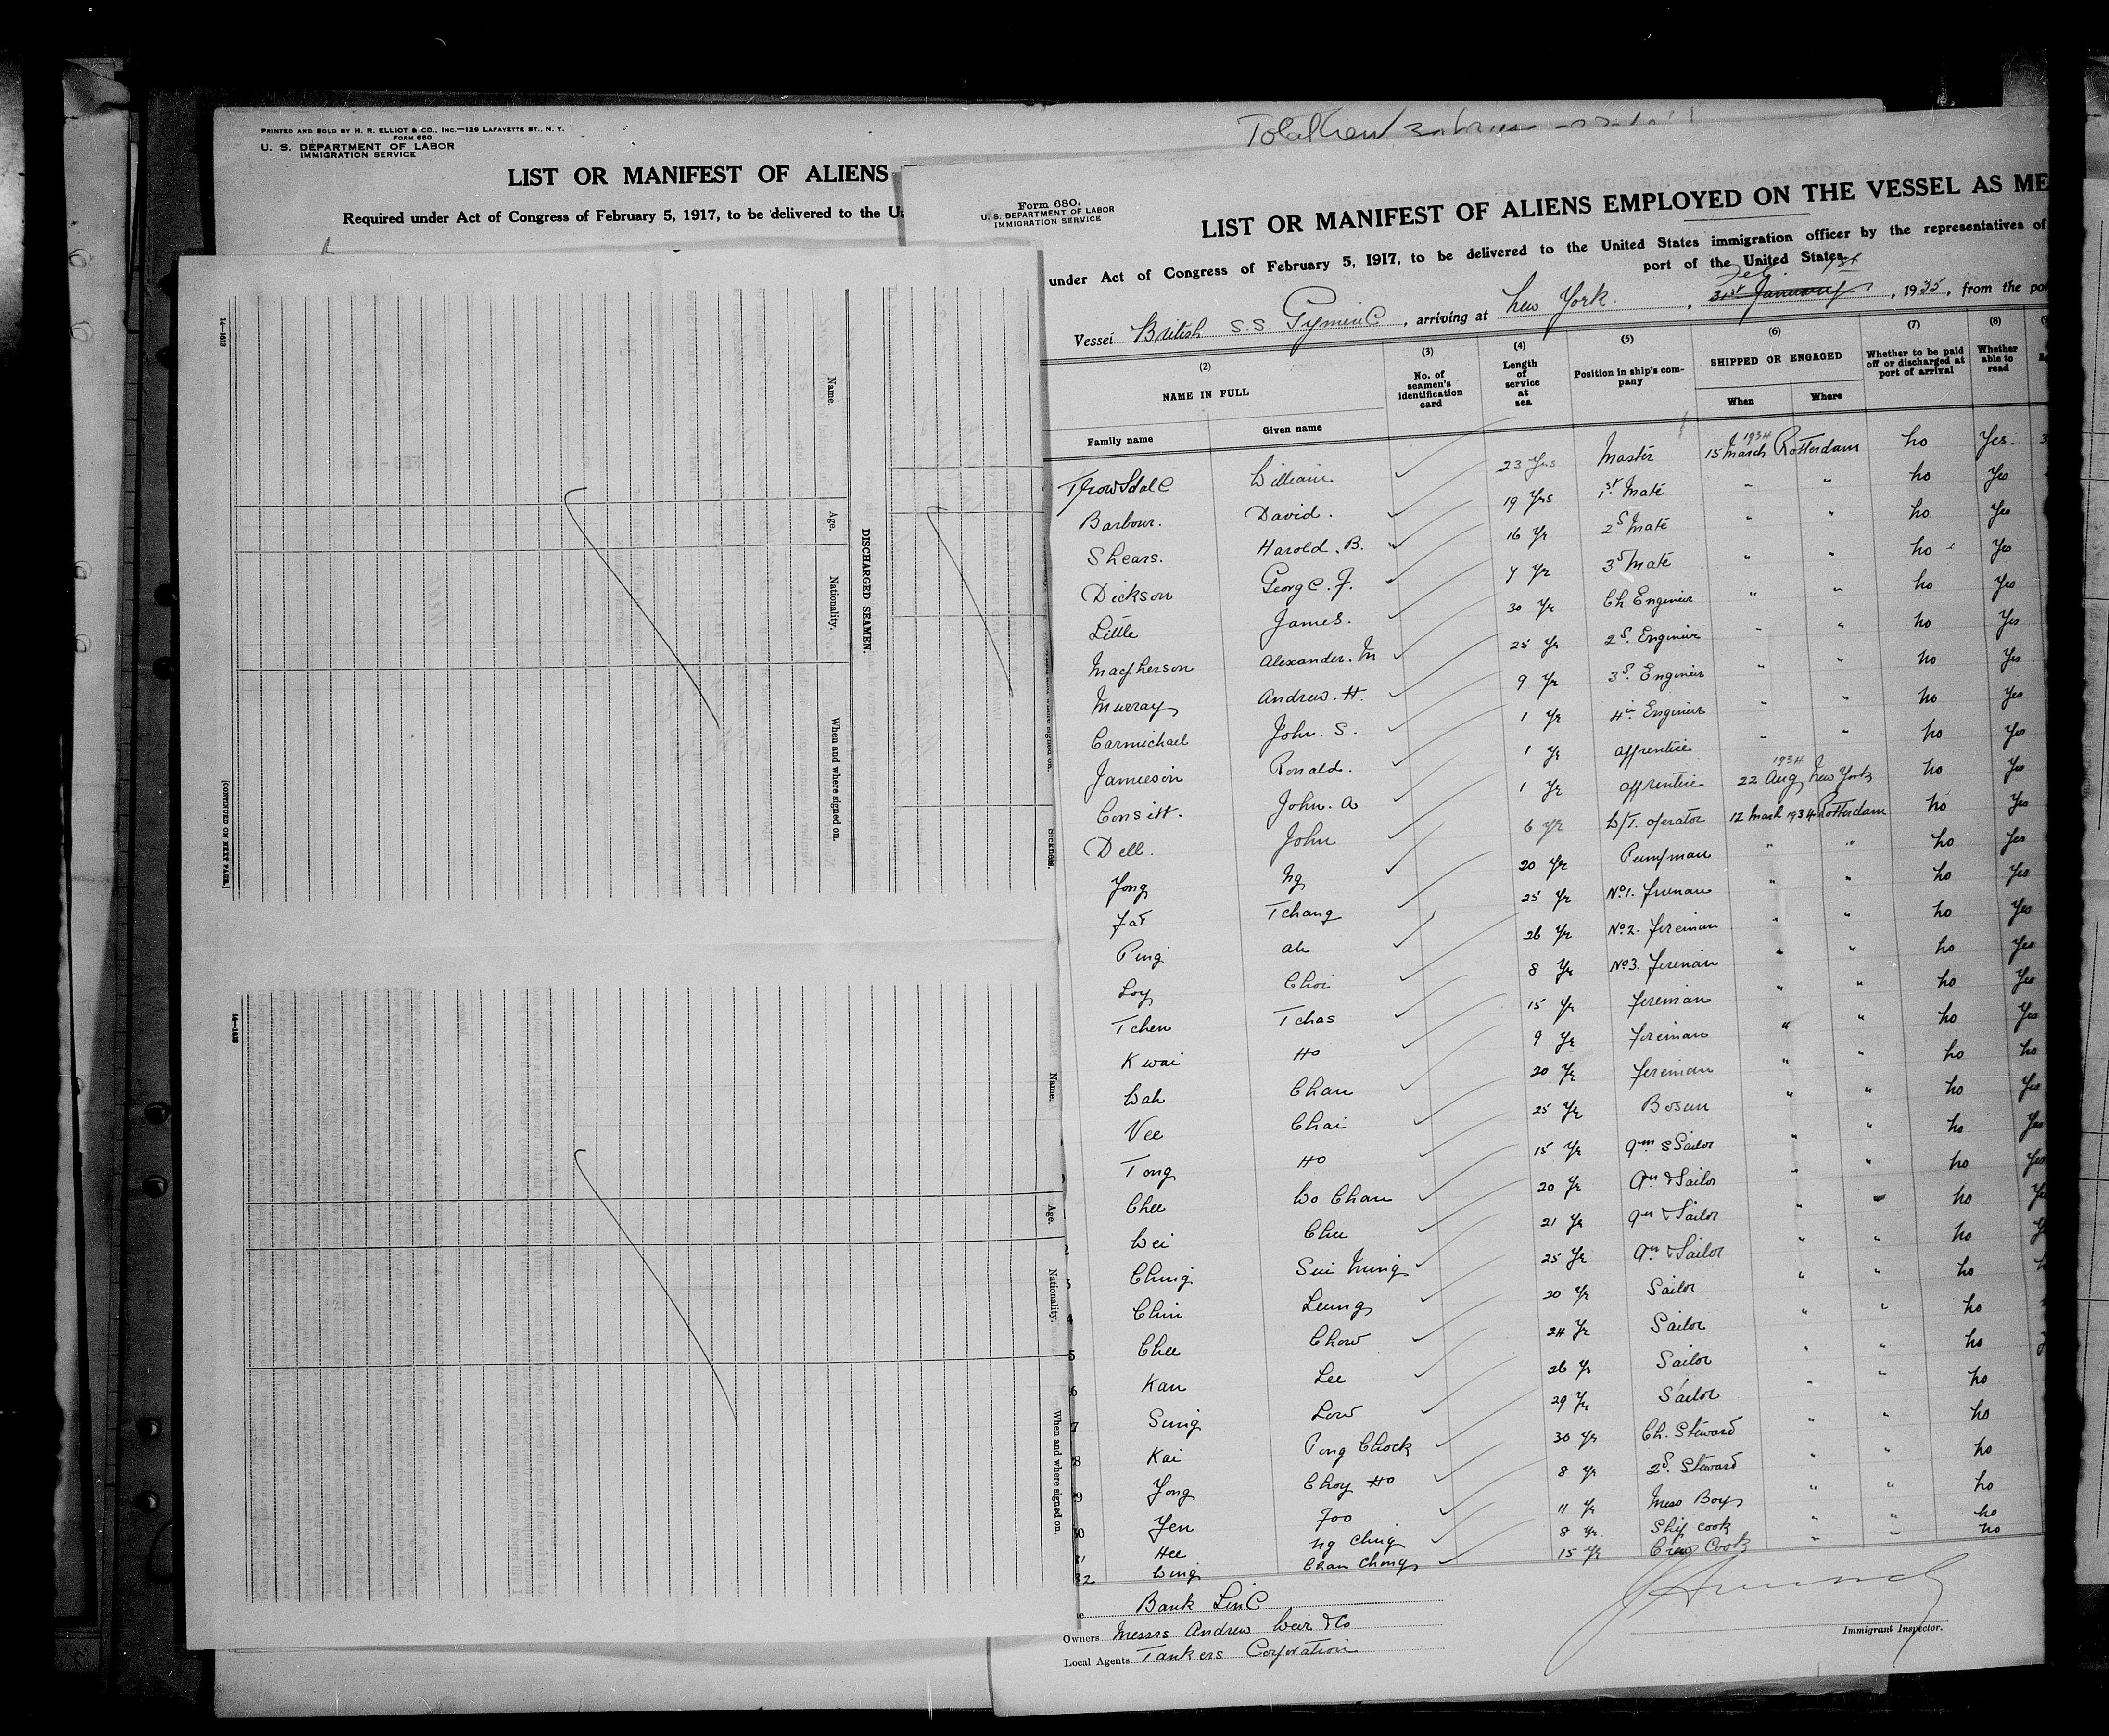 PRINTED AND SOLD BY H. R. ELLIOT & CO., INC.—129 LAFAYETTE ST., N. Y.
FORM 680
U. S. DEPARTMENT OF LABOR
IMMIGRATION SERVICE
LIST OR MANIFEST OF ALIENS
Required under Act of Congress of February 5, 1917, to be delivered to the
14—1613
Name.
Age.
Nationality.
When and where signed on.
DISCHARGED SEAMEN.
SICKNESS.
[CONTINUED ON NEXT PAGE.]
14—1613
Name.
Age.
Nationality.
When and where signed on.
Total Crew
Form 680
U. S. DEPARTMENT OF LABOR
IMMIGRATION SERVICE
LIST OR MANIFEST OF ALIENS EMPLOYED ON THE VESSEL AS ME
under Act of Congress of February 5, 1917, to be delivered to the United States immigration officer by the representatives of
port of the United States
Feb 1st
Vessel British S.S. Tymeric, arriving at New York, 31st January, 1935, from the po
(2) (3) (4) (5) (6) (7) (8)
NAME IN FULL No. of seamen's identification card Length of service at sea Position in ship's company SHIPPED OR ENGAGED Whether to be paid off or discharged at port of arrival Whether able to read
Family name Given name When Where
Trowsdale William 23 Yrs Master 15 March 1934 Rotterdam no Yes
Barbour. David. 19 Yrs 1st Mate " " no Yes
Shears. Harold. B. 16 Yr 2d Mate " " no Yes
Dickson George. F. 7 Yr 3d Mate " " no Yes
Little James. 30 Yr Ch Engineer " " no Yes
Macpherson Alexander. M 25 Yr 2d. Engineer " " no Yes
Murray Andrew. H. 9 Yr 3d. Engineer " " no Yes
Carmichael John. S. 1 Yr 4th Engineer " " no Yes
Jamieson Ronald. 1 Yr apprentice " " no Yes
Consitt. John. A 1 Yr apprentice 22 Aug 1934 New York no Yes
Dell. John 6 Yr W/T. operator 12 March 1934 Rotterdam no Yes
Yong Ng 20 Yr Pumpman " " no Yes
Fat Tchang 25 Yr No 1. fireman " " no Yes
Ping Ah 26 Yr No 2. fireman " " no Yes
Loy Choi 8 Yr No 3. fireman " " no Yes
Tchen Tchas 15 Yr fireman " " no Yes
Kwai Ho 9 Yr fireman " " no Yes
Wah Chan 20 Yr fireman " " no no
Vee Chai 25 Yr Bosun " " no Yes
Tong Ho 15 Yr Qm & Sailor " " no Yes
Chee Wo Chan 20 Yr Qm & Sailor " " no Yes
Wei Chu 21 Yr Qm & Sailor " " no
Ching Sui Nung 25 Yr Qm & Sailor " " no
Chin Leung 20 Yr Sailor " " no
Chee Chow 24 Yr Sailor " " no
Kan Lee 26 Yr Sailor " " no
Sung Low 29 Yr Sailor " " no
Kai Pong Chock 30 Yr Ch. Steward " " no
Yong Choy Ho 8 Yr 2d. Steward " " no
Yen Foo 11 Yr Mess Boy " " no
Hee Ng Ching 8 Yr. Ship cook " " no
32 Wing Chan Chong 15 Yr Crew Cook " " no
Bank Line
Owners Messrs Andrew Weir & Co
Local Agents. Tankers Corporation
Immigrant Inspector.